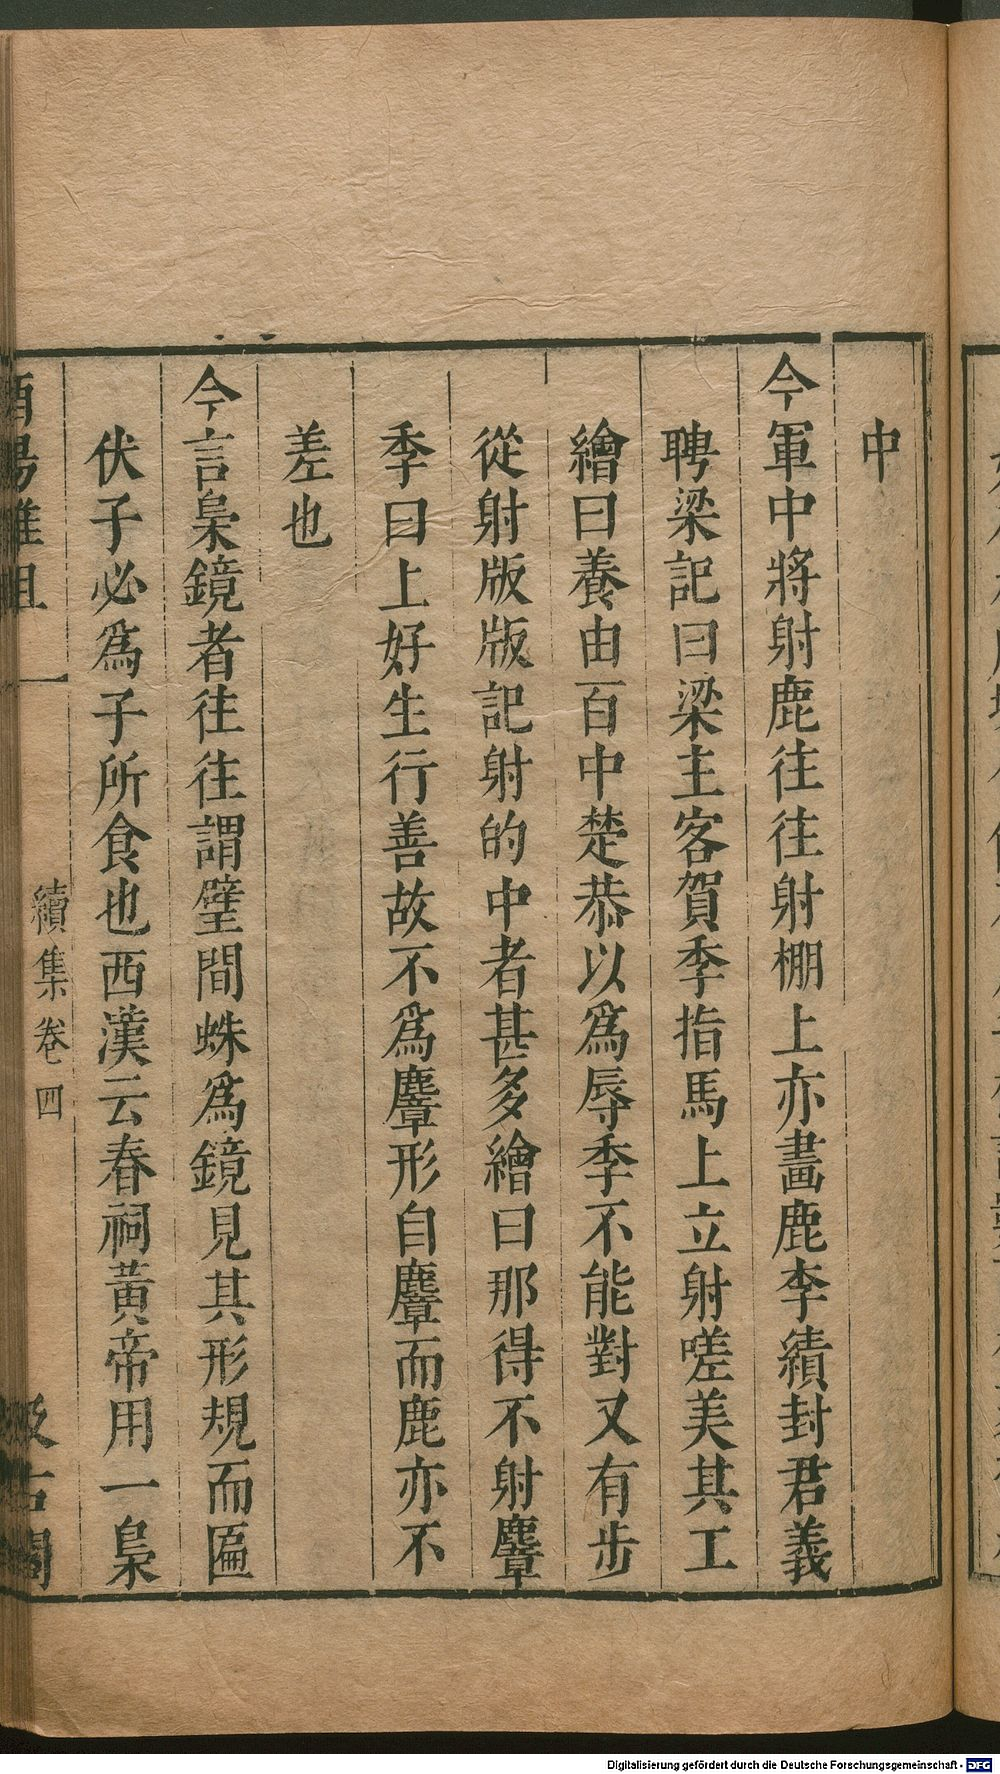 中
今軍中將射鹿往往射棚上亦畫鹿李績封君義
聘梁記曰梁主客賀季指馬上立射嗟美其工
繪曰養由百中楚恭以爲辱季不能對又有步
從射版版記射的中者甚多繪曰那得不射麞
季曰上好生行善故不爲麞形自麞而鹿亦不
差也
今言梟鏡者往往謂壁間蛛爲鏡見其形規而匾
伏子必爲子所食也西漢云春祠黄帝用一梟
酉陽雜俎
續集卷四
汲古閣
Digitalisierung gefördert durch die Deutsche Forschungsgemeinschaft - DFG